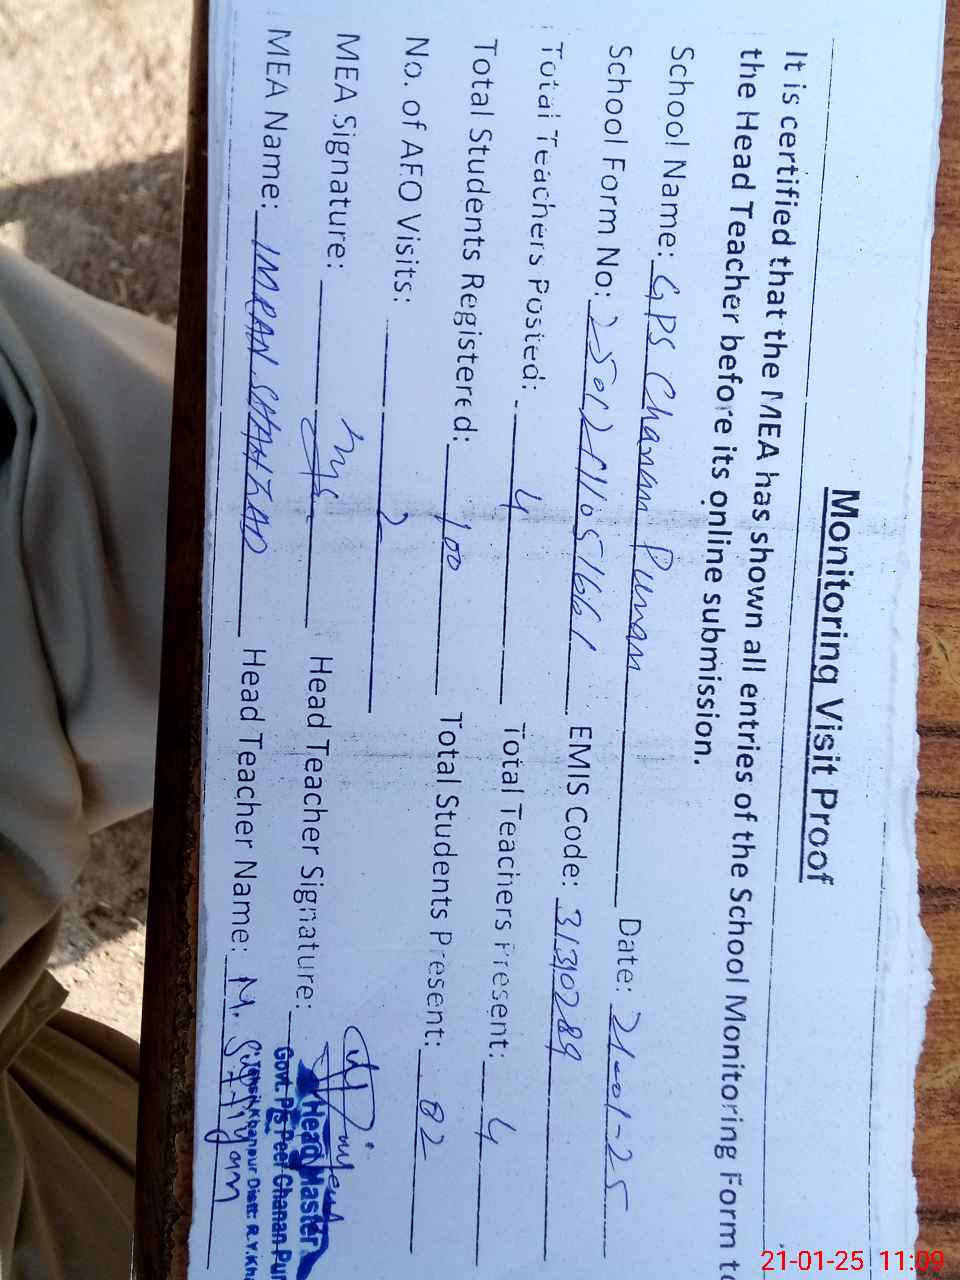 Monitoring Visit Proof
It is certified that the MEA has shown all entries of the School Monitoring Form to
the Head Teacher before its online submission.
School Name: GPS Chanan Punan Date: 21-01-25
School Form No: EMIS Code: 31310289
Total Teachers Posted: 4 Total Teachers Present: 4
Total Students Registered: 100 Total Students Present: 82
No. of AEO Visits: 2
MEA Signature: Head Teacher Signature:
MEA Name: IMRAN SHAHZAD Head Teacher Name: M. Sufiyan
Head Master
Govt. P/S Peer Chanan Pur
Tehsil Khanpur Distt: R.Y.Kha
21-01-25 11:09